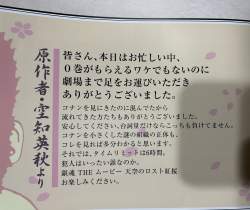 原作者・空知英秋より
皆さん、本日はお忙しい中、
0巻がもらえるワケでもないのに
劇場まで足をお運びいただき
ありがとうございました。
コナンを見にきたのに混んでたから
流れてきた方たちもありがとうございました。
安心してください、台詞量だけならこっちも負けてません。
コナンを小さくした謎の組織の正体も、
コレを見れば多分わかると思います。
それでは、タイムリミットは6時間、
犯人はいったい誰なのか。
銀魂 THE ムービー 天空のロスト紅桜
お楽しみください。